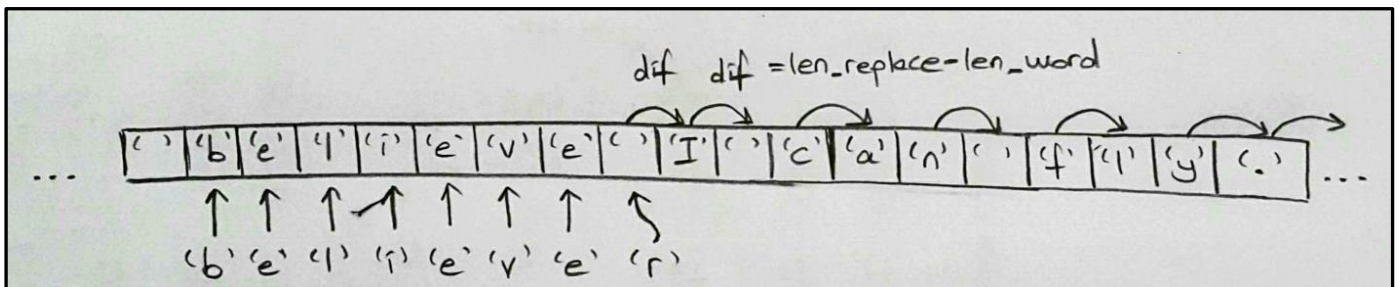 dif dif = len_replace-len_word
... ' ' 'b' 'e' 'l' 'i' 'e' 'v' 'e' ' ' 'I' ' ' 'c' 'a' 'n' ' ' 'f' 'l' 'y' '.' ...
'b' 'e' 'l' 'i' 'e' 'v' 'e' 'r'